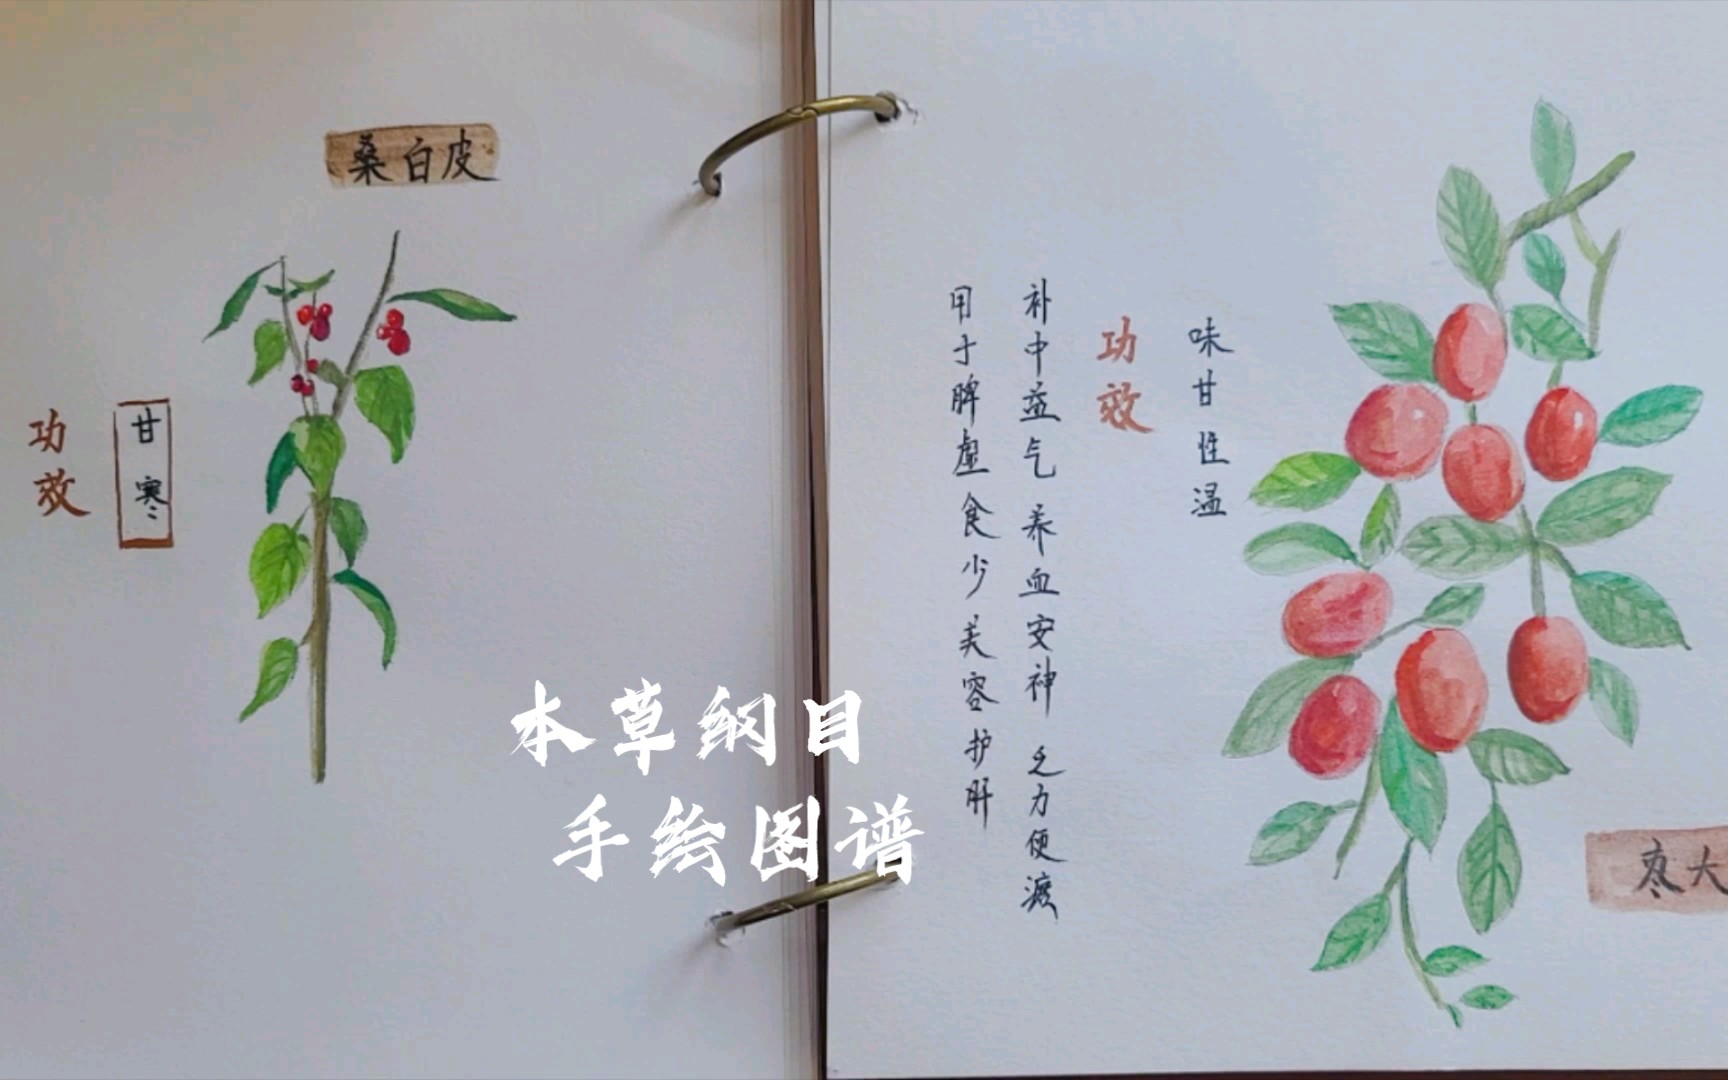 桑白皮
甘寒
功效
大枣
味甘性温
功效
补中益气养血安神 乏力便
用于脾虚食少美容护肝
本草纲目
手绘图谱